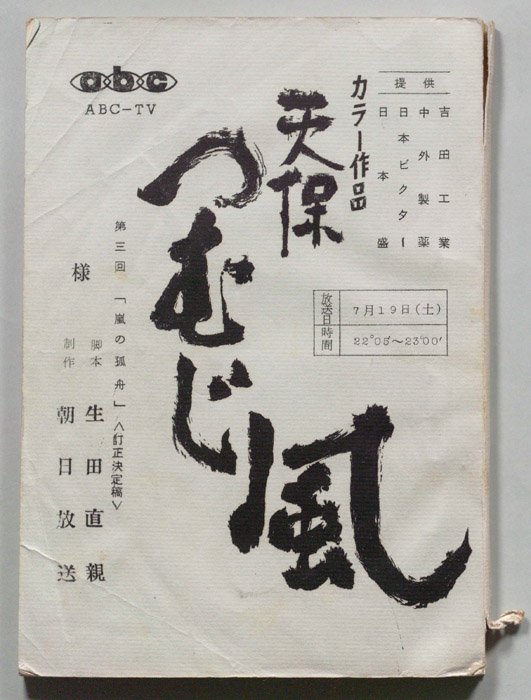 提供
吉田工業
中外製薬
日本ビクター
日本盛
カラー作品
天保
つむじ風
放送日 7月19日(土)
時間 22°05′〜23°00′
abc
ABC-TV
第三回 「嵐の孤舟」〈訂正決定稿〉
様
脚本 生田直親
制作 朝日放送